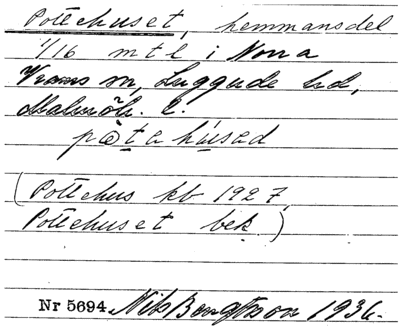 Pottehuset, hemmansdel
1/16 mtl i Norra
Vrams sn, Luggude hd,
Malmöh. l.
påta húsad
(Pottehus kb 1927,
Pottehuset bek.)
Nr 5694. Nils Bengtsson 1936.